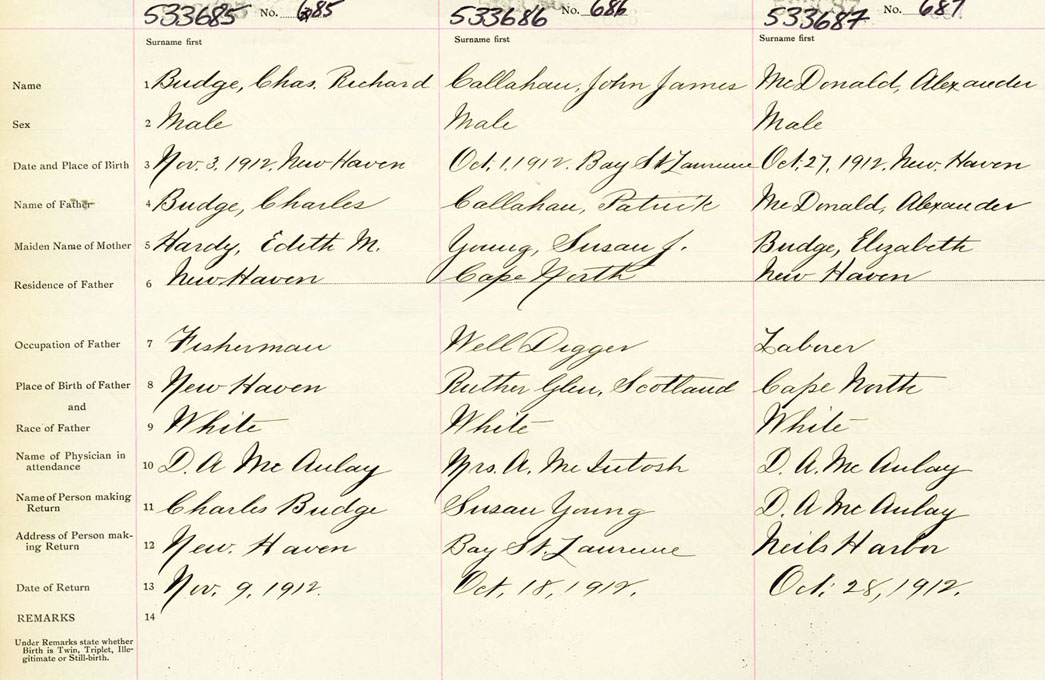 533685 No. 685 533686 No. 686 533687 No. 687
Surname first Surname first Surname first
Name 1 Budge, Chas. Richard Callahan, John James McDonald, Alexander
Sex 2 Male Male Male
Date and Place of Birth 3 Nov. 3, 1912, New Haven Oct. 1, 1912. Bay St Laurence Oct. 27, 1912. New Haven
Name of Father 4 Budge, Charles Callahan, Patrick McDonald, Alexander
Maiden Name of Mother 5 Hardy, Edith M. Young, Susan J. Budge, Elizabeth
Residence of Father 6 New Haven Cape North New Haven
Occupation of Father 7 Fisherman Well Digger Laborer
Place of Birth of Father 8 New Haven Ruther Glen, Scotland Cape North
and
Race of Father 9 White White White
Name of Physician in
attendance 10 D. A Mc Aulay Mrs. A. McIntosh D. A. Mc Aulay
Name of Person making
Return 11 Charles Budge Susan Young D. A Mc Aulay
Address of Person mak-
ing Return 12 New. Haven Bay St. Laurence Neils Harbor
Date of Return 13 Nov. 9, 1912. Oct. 18, 1912. Oct. 28, 1912.
REMARKS 14
Under Remarks state whether
Birth is Twin, Triplet, Ille-
gitimate or Still-birth.